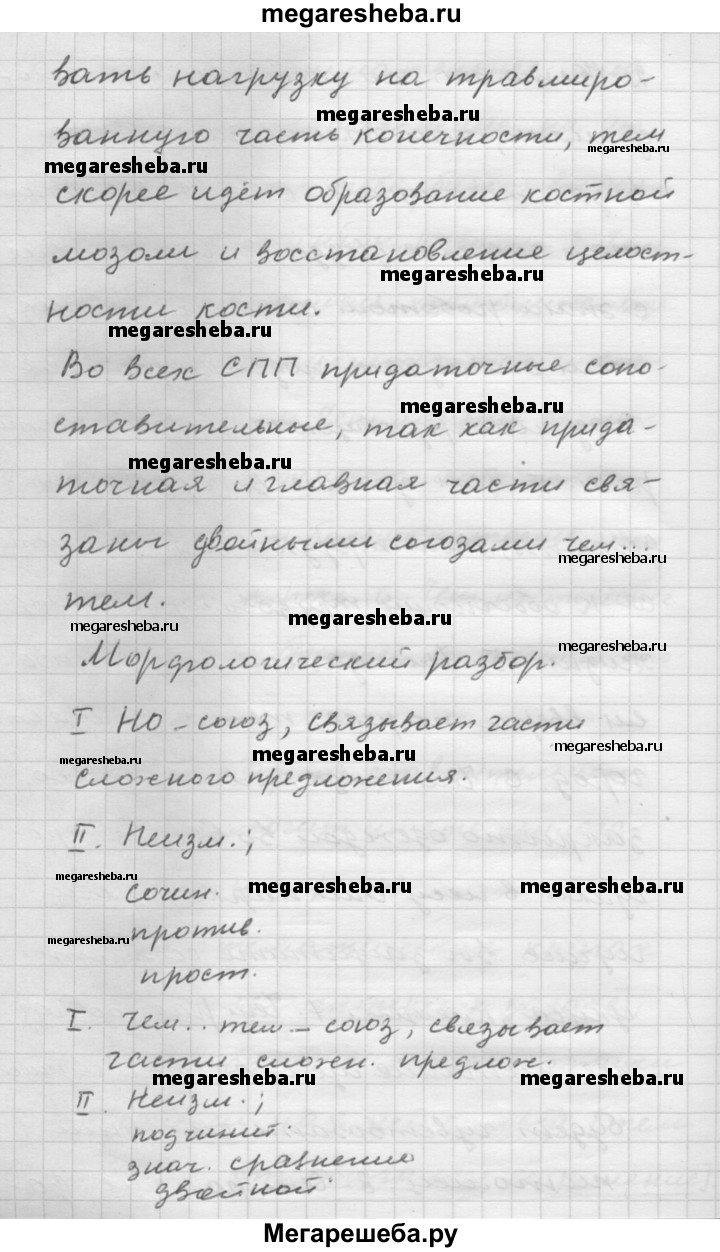 megaresheba.ru
вать нагрузку на травмиро-
megaresheba.ru
ванную часть конечности, тем
megaresheba.ru
megaresheba.ru
скорее идёт образование костной
мозоли и восстановление целост-
megaresheba.ru
ности кости.
megaresheba.ru
Во всех СПП придаточные сопо-
megaresheba.ru
ставительные, так как прида-
megaresheba.ru
точная и главная части свя-
заны двойными союзами чем...
megaresheba.ru
тем.
megaresheba.ru
megaresheba.ru
Морфологический разбор.
I Но – союз, связывает части
megaresheba.ru
megaresheba.ru
megaresheba.ru
сложного предложения.
II. Неизм.;
megaresheba.ru
сочин.
megaresheba.ru
megaresheba.ru
против.
megaresheba.ru
прост.
I. Чем.. тем – союз, связывает
части сложн. предлож.
megaresheba.ru
megaresheba.ru
II. Неизм.;
подчинит.
знач. сравнение
двойной.
Мегарешеба.ру